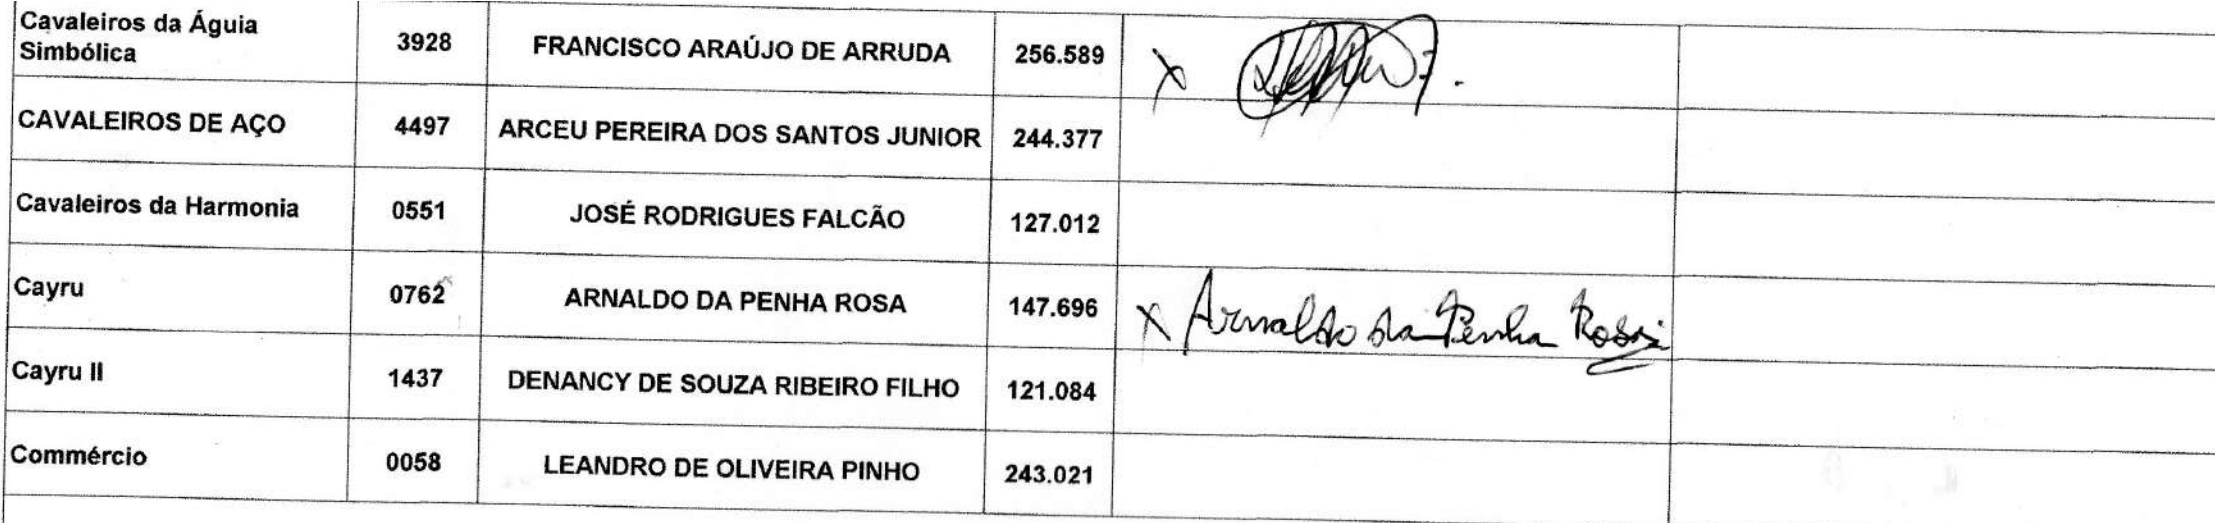 Cavaleiros da Águia
Simbólica
3928
FRANCISCO ARAÚJO DE ARRUDA
256.589
X
CAVALEIROS DE AÇO
4497
ARCEU PEREIRA DOS SANTOS JUNIOR
244.377
Cavaleiros da Harmonia
0551
JOSÉ RODRIGUES FALCÃO
127.012
Cayru
0762
ARNALDO DA PENHA ROSA
147.696
X Arnaldo da Penha Rosa
Cayru II
1437
DENANCY DE SOUZA RIBEIRO FILHO
121.084
Commércio
0058
LEANDRO DE OLIVEIRA PINHO
243.021